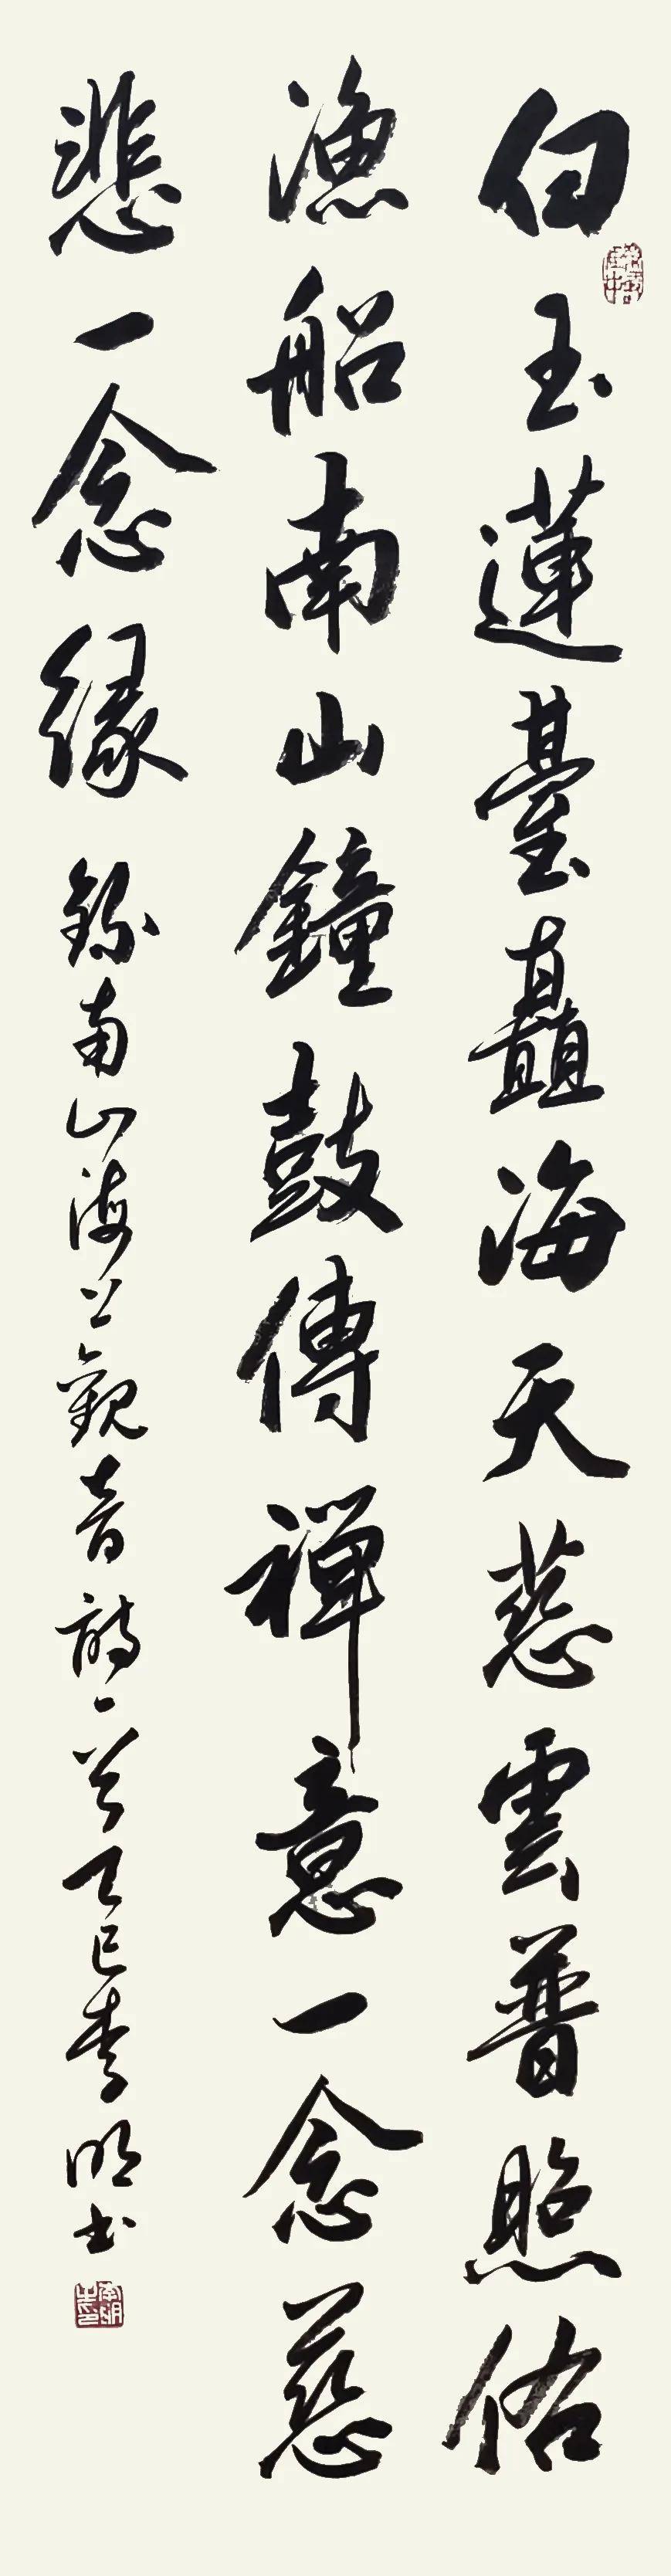 白玉蓮臺矗海天慈雲普照佑
漁船南山鐘鼓傳禪意一念慈
悲一念緣 錄南山海上觀音詩一首乙巳李明书